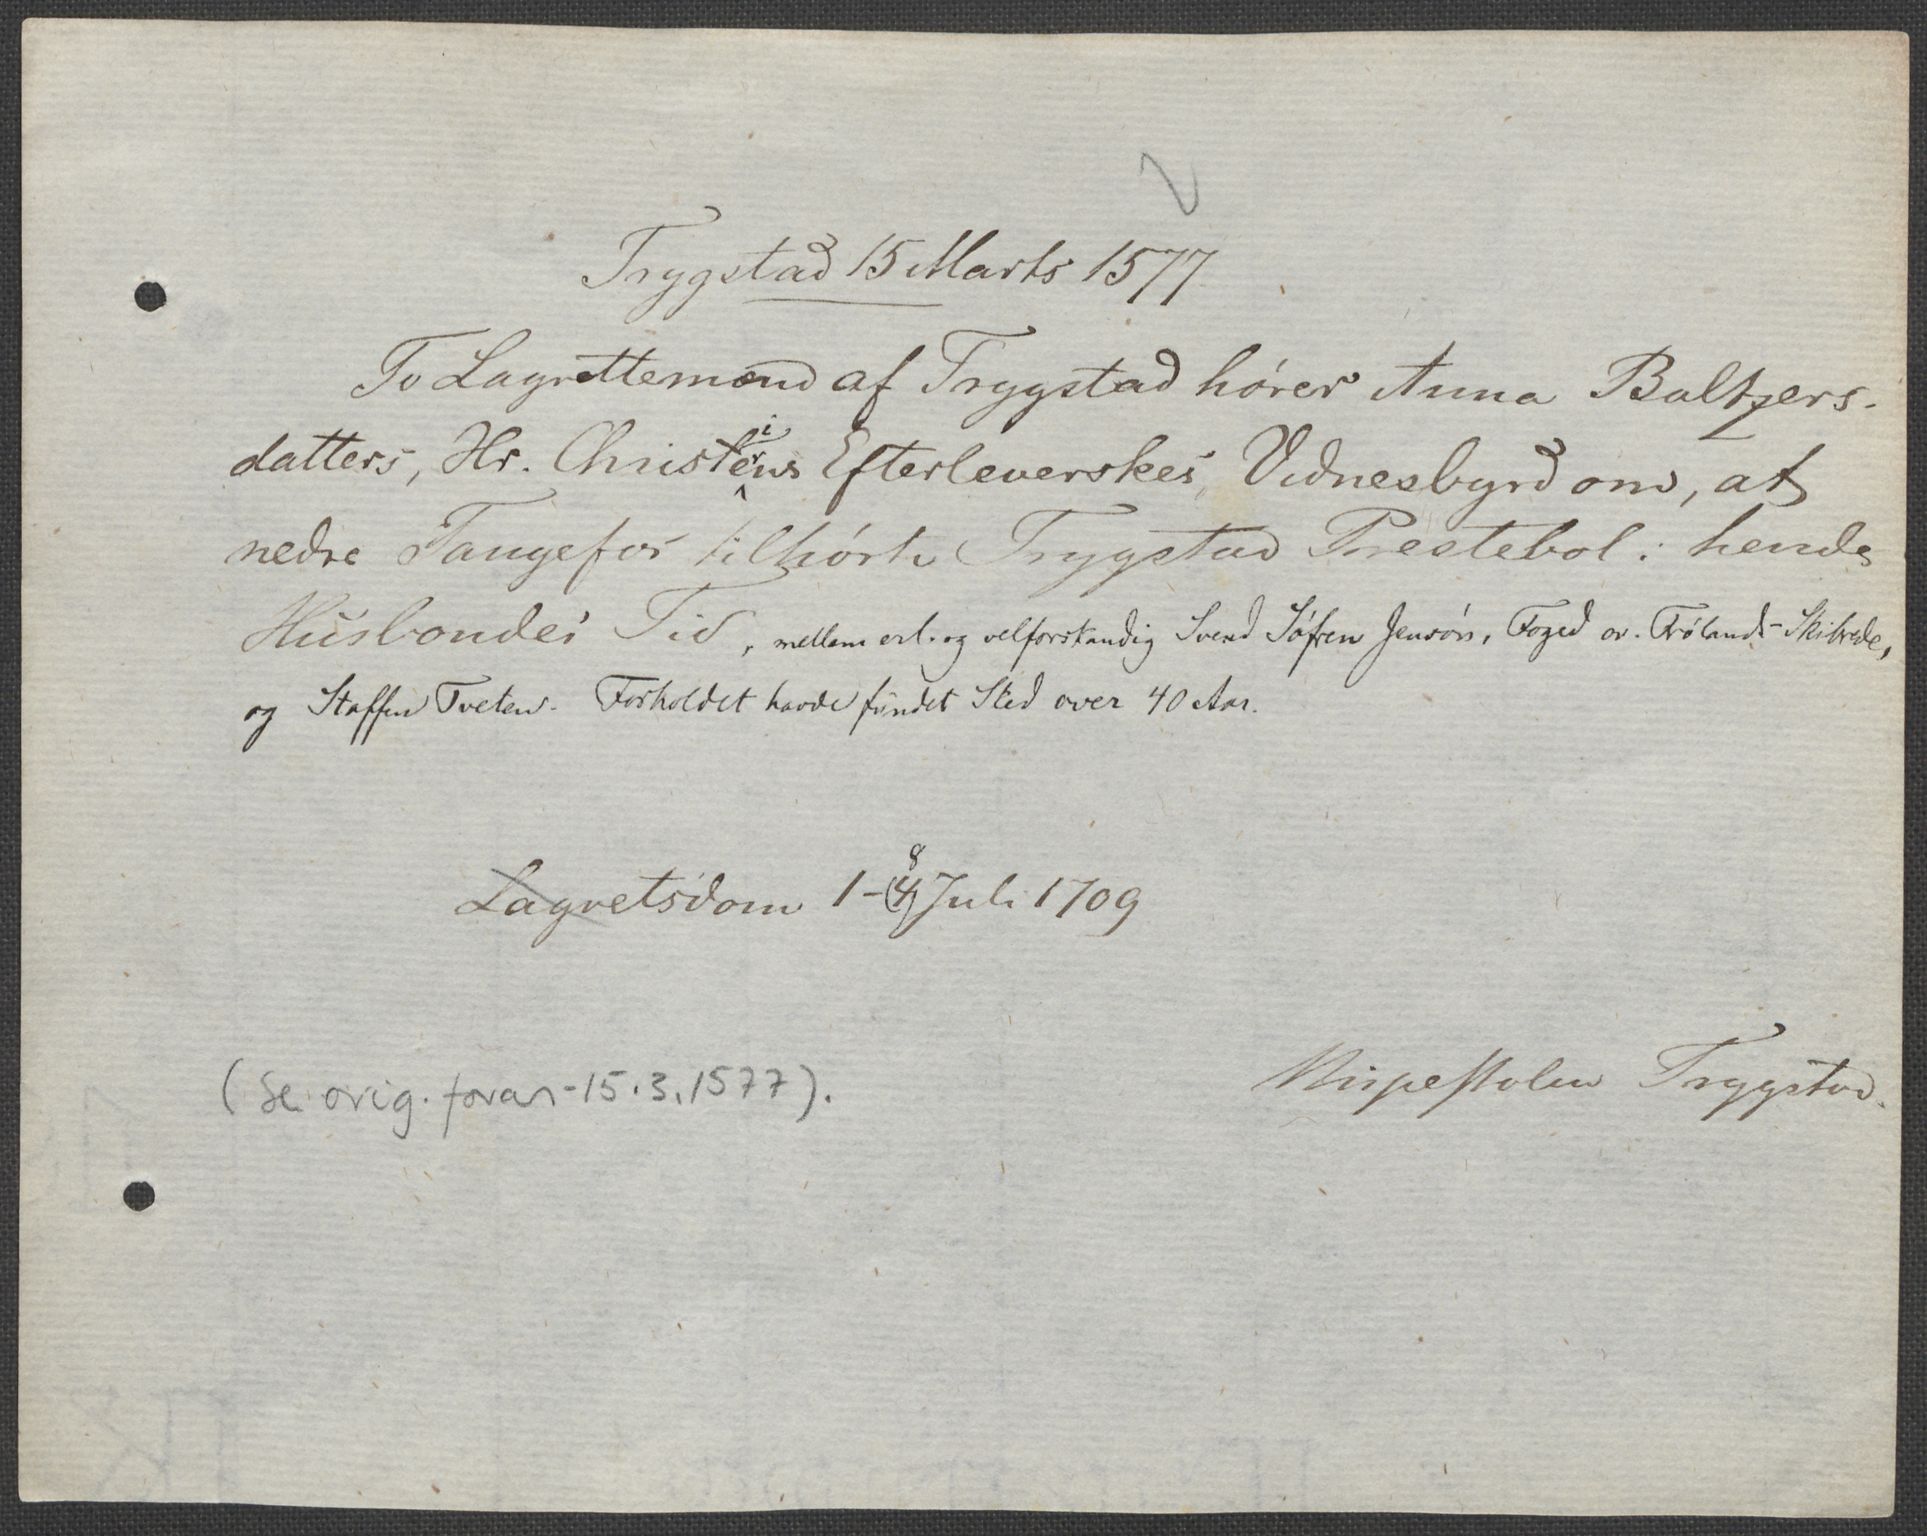 Trygstad 15 Marts 1577
To Lagrettemænd af Trygstad hører Anna Baltzers-
datters, Hr. Christiens Efterleverskes, Vidnesbyrd om, at
nedre Tangefos tilhørte Trygstad Prestebol i hendes
Husbondes Tid, mellem erl. og velforstandig Svend Søfren Jensøn, Foged ov. Frølands Skibrede,
og Staffen Tveten. Forholdet havde fundet Sted over 40 Aar.
Lagretsdom 1-8 4 Juli 1709
(Se orig. foran - 15.3.1577).
Trygstad.